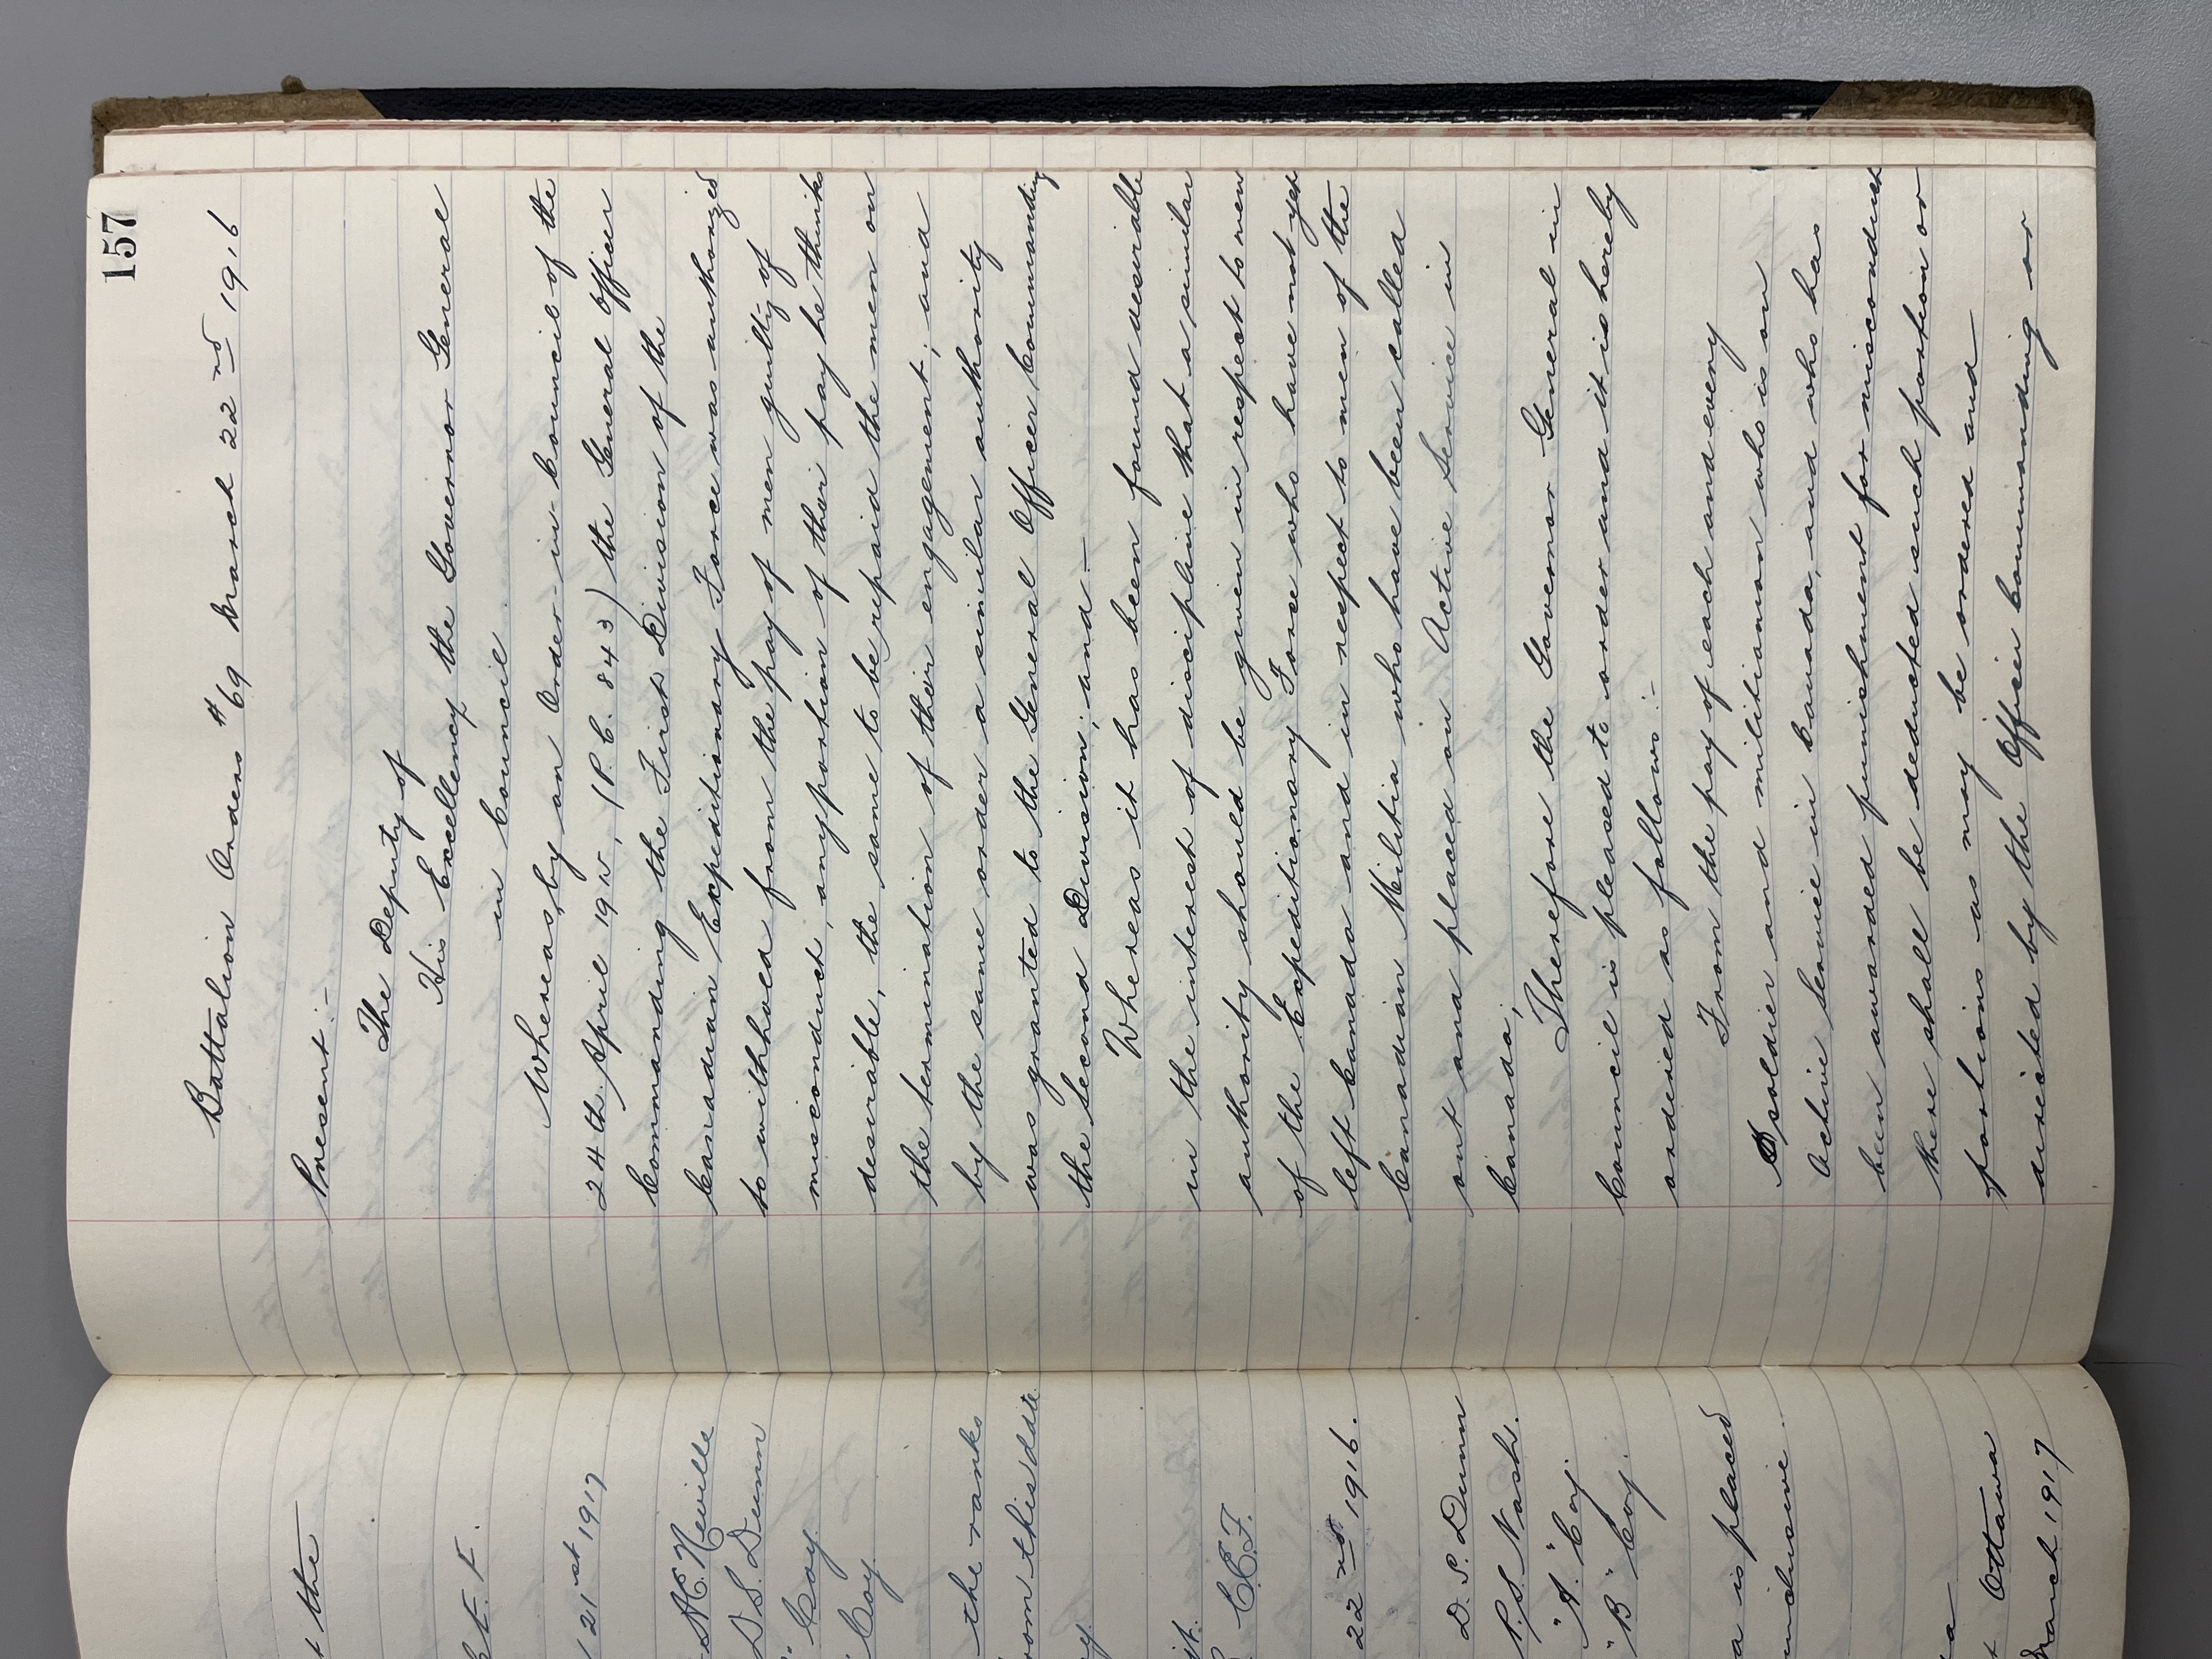 t the
E.F.
21st 1917
H.C. Neville
D.S. Dunn
" Coy
" Coy
the ranks
from this date
C.E.F.
22nd 1916.
D.S. Dunn
P.S. Nash.
"A" Coy.
"B" Coy.
a is placed
inclusive.
Ottawa
March 1917
157
Battalion Orders #69 March 22nd 1916
Present:-
The Deputy of
His Excellency the Governor General
in Council.
Whereas, by an Order-in-Council of the
24th April 1915, (P.C. 843) the General Officer
Commanding the First Division of the
Canadian Expeditionary Force was authorized
to withhold from the pay of men guilty of
misconduct, any portion of their pay he thinks
desirable, the same to be repaid the men on
the termination of their engagement; and
by the same order a similar authority
was granted to the General Officer Commanding
the Second Division; and -
Whereas it has been found desirable
in the interest of discipline that a similar
authority should be given in respect to men
of the Expeditionary Force who have not yet
left Canada and in respect to men of the
Canadian Militia who have been called
out and placed on Active Service in
Canada;
Therefore the Governor General in
Council is pleased to order and it is hereby
ordered as follows:-
From the pay of each and every
soldier and militiaman who is on
Active Service in Canada, and who has
been awarded punishment for misconduct
there shall be deducted such portion or
portions as may be ordered and
directed by the Officer Commanding or